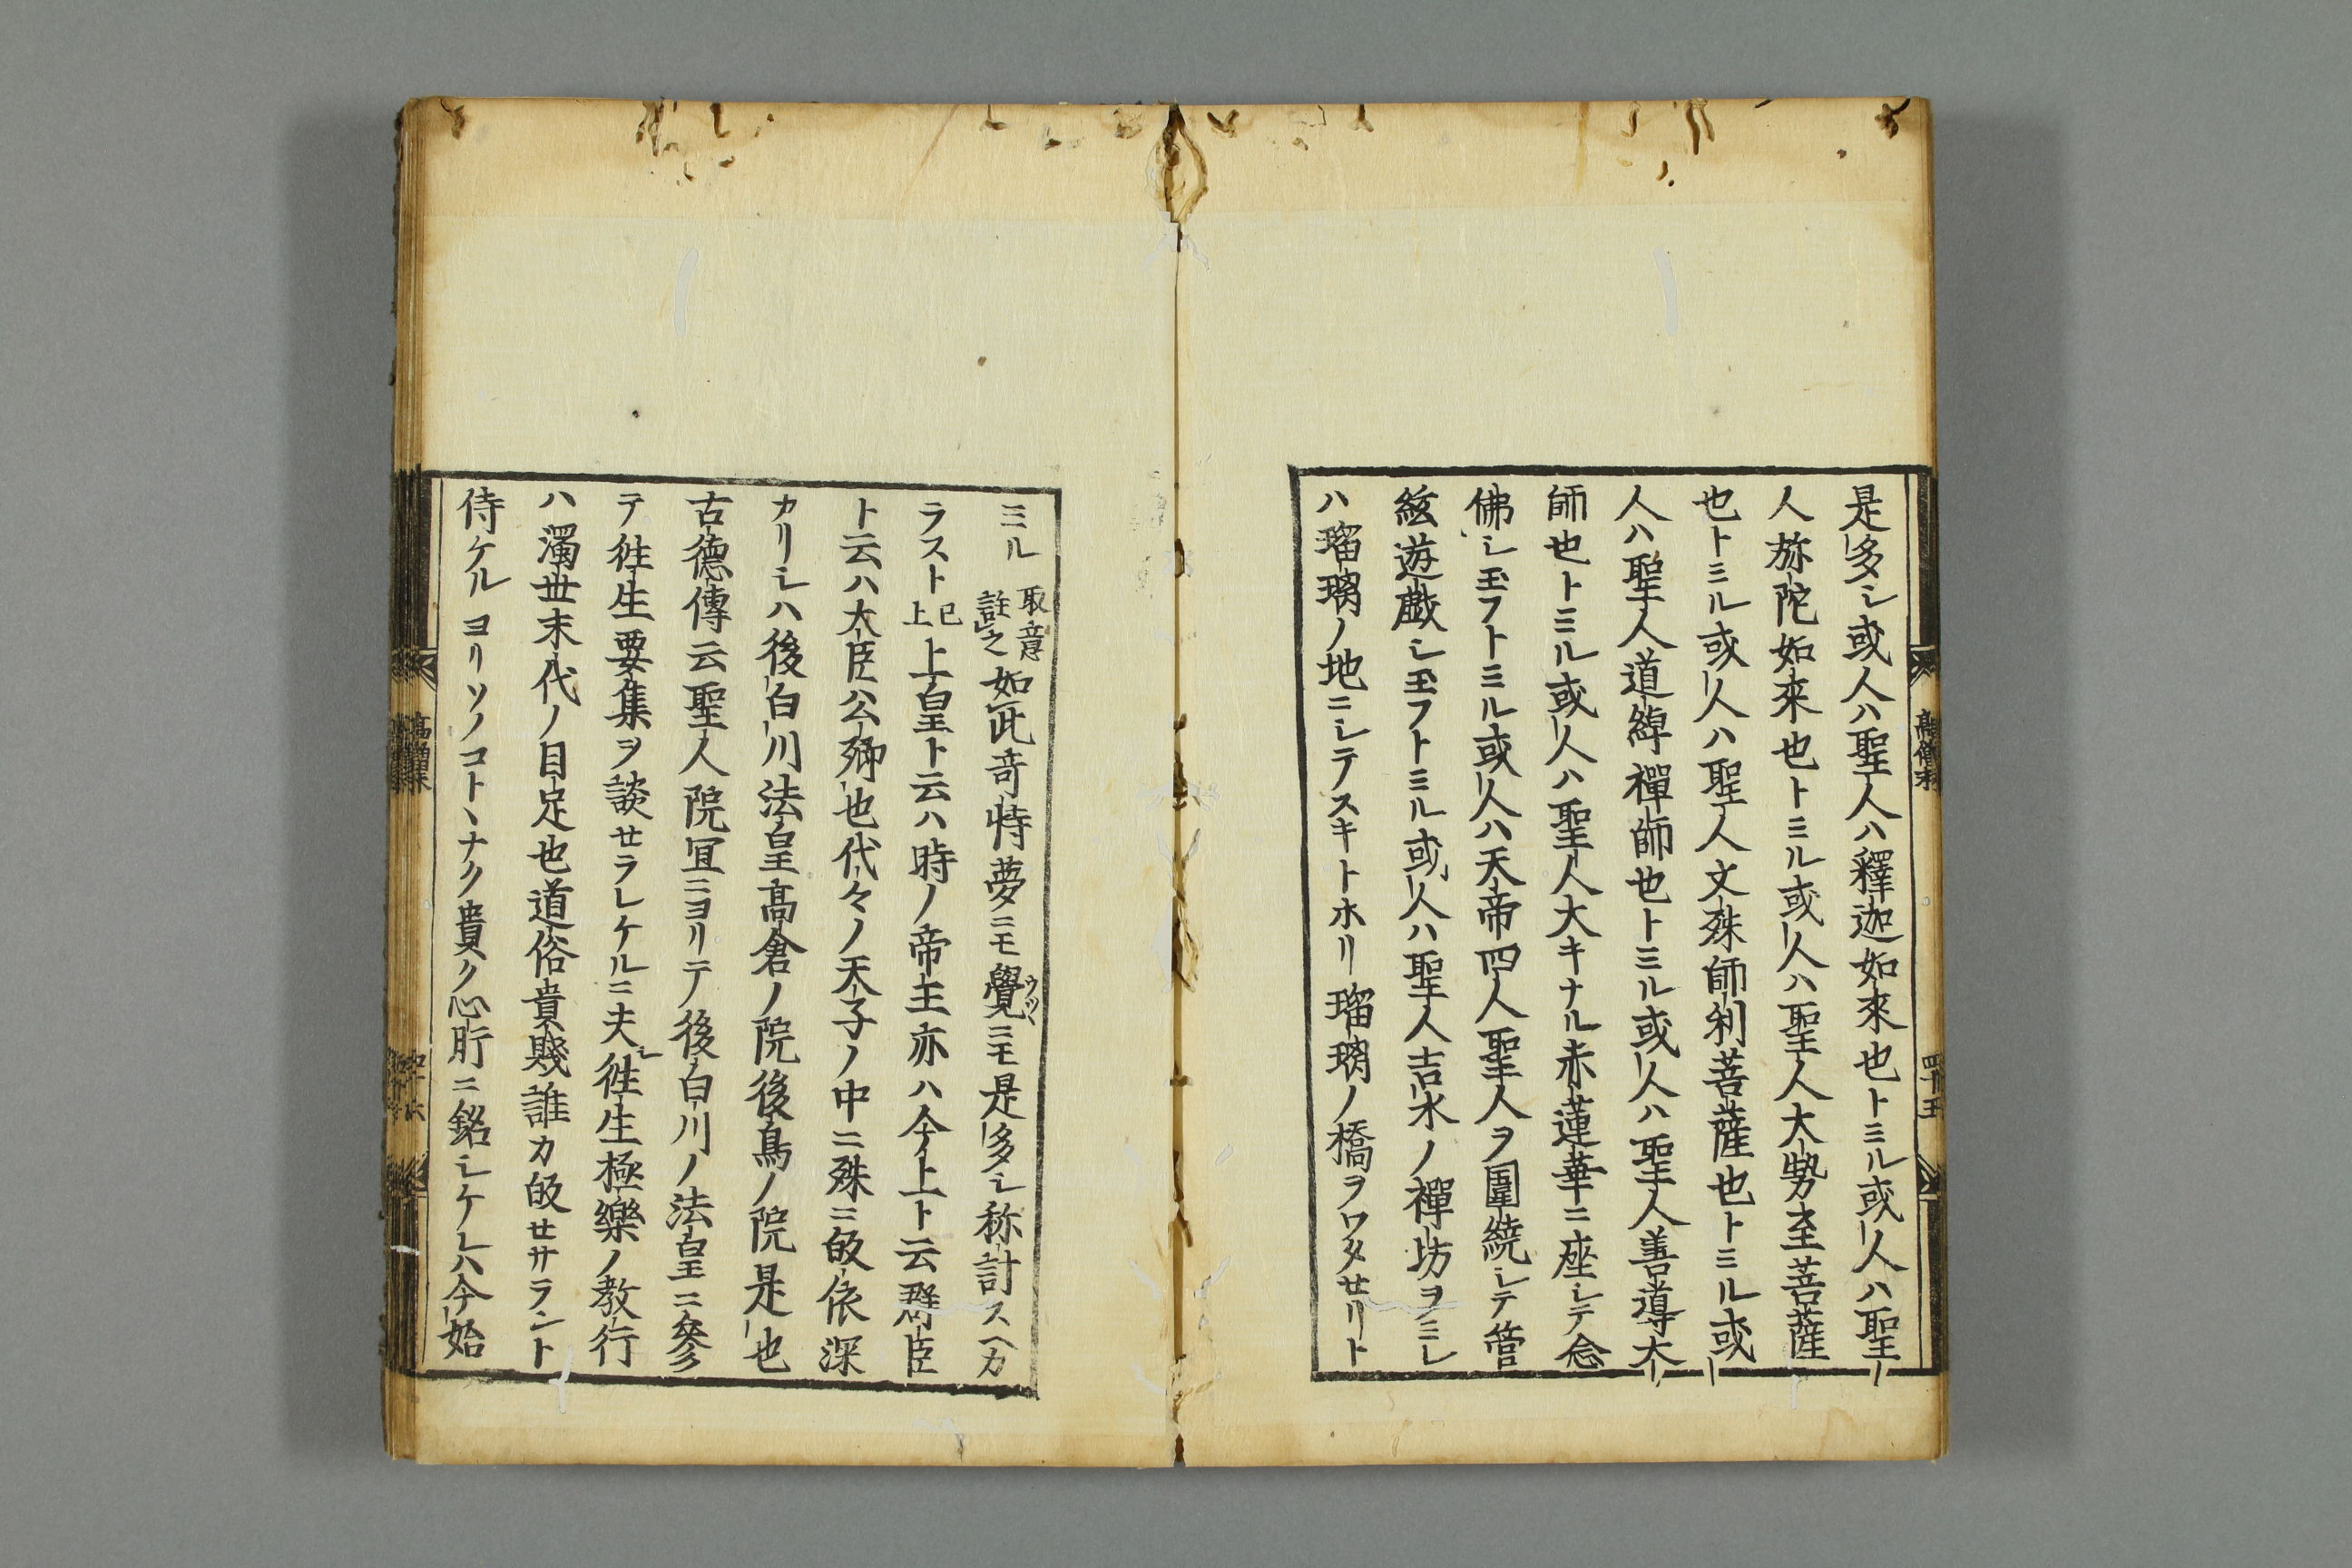 是多シ或人ハ聖人ハ釋迦如來也トミル或人ハ聖
人弥陀如來也トミル或人ハ聖人大勢至菩薩
也トミル或人ハ聖人文殊師利菩薩也トミル或
人ハ聖人道綽禪師也トミル或人ハ聖人善導大
師也トミル或人ハ聖人大キナル赤蓮華ニ座シテ念
佛シ玉フトミル或人ハ天帝四人聖人ヲ圍繞シテ管
絃遊戯シ玉フトミル或人ハ聖人吉水ノ禪坊ヲミレ
ハ瑠璃ノ地ニシテスキトホリ瑠璃ノ橋ヲワタセリト
四十五
ミル取意註之如此竒特夢ニモ覺ウツヽニモ是多シ称計スヘカ
ラスト已上上皇ト云ハ時ノ帝王亦ハ今上ト云羣臣
ト云ハ大臣公卿也代々ノ天子ノ中ニ殊ニ皈依深
カリシハ後白川法皇高倉ノ院後鳥ノ院是也
古德傳云聖人院宣ニヨリテ後白川ノ法皇ニ參
テ徃生要集ヲ談セラレケルニ夫レ徃生極樂ノ教行
ハ濁世末代ノ目足也道俗貴賤誰カ皈セサラント
侍ケルヨリソノコトヽナク貴ク心肝ニ銘シケレハ今始
高僧末